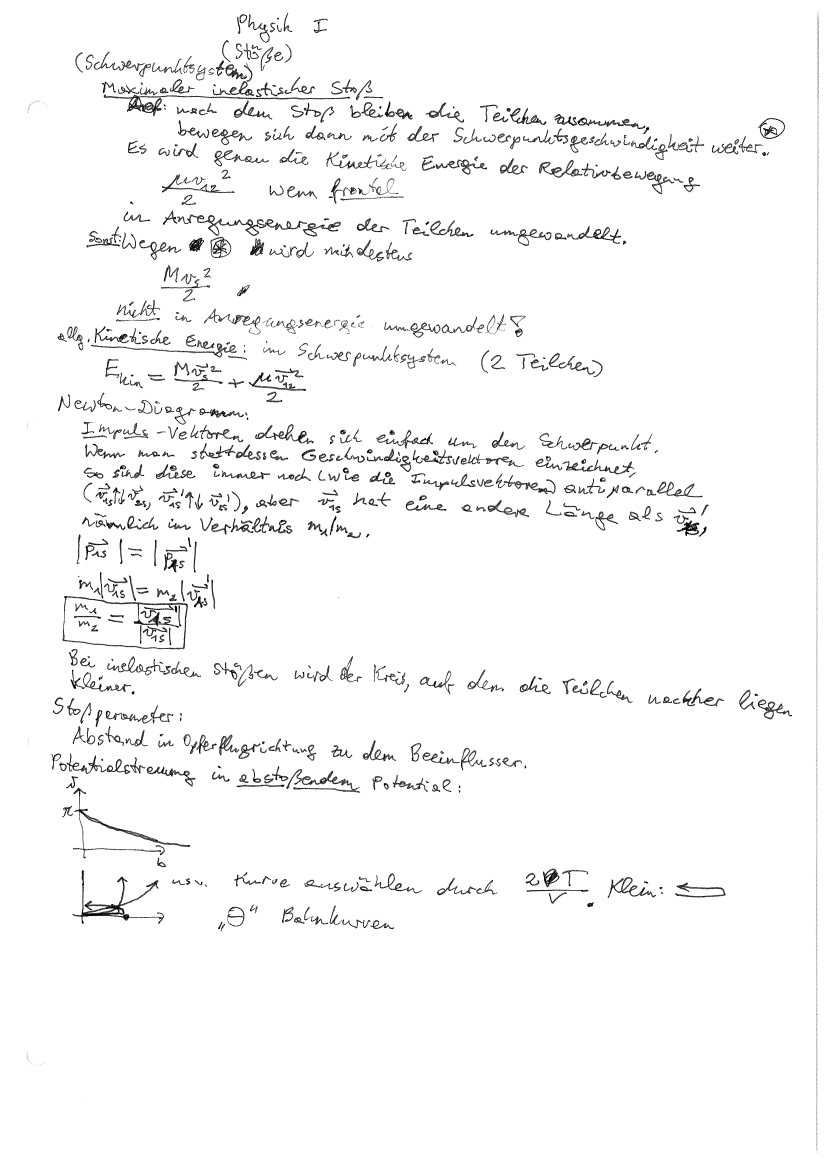 Physik I
(Stöße)
(Schwerpunktsystem)
Maximaler inelastischer Stoß
Def: nach dem Stoß bleiben die Teilchen zusammen,
bewegen sich dann mit der Schwerpunktsgeschwindigkeit weiter. (*)
Es wird genau die Kinetische Energie der Relativbewegung
μv₁₂²/2 wenn frontal
in Anregungsenergie der Teilchen umgewandelt.
Sonst: Wegen (*) wird mindestens
Mvₛ²/2
nicht in Anregungsenergie umgewandelt!
allg. Kinetische Energie: im Schwerpunktsystem (2 Teilchen)
E_kin = Mv⃗ₛ²/2 + μv⃗₁₂²/2
Newton-Diagramm:
Impuls-Vektoren drehen sich einfach um den Schwerpunkt.
Wenn man stattdessen Geschwindigkeitsvektoren einzeichnet,
so sind diese immer noch (wie die Impulsvektoren) antiparallel
(v⃗₁ₛ↑↓v⃗₂ₛ, v⃗₁ₛ'↑↓v⃗₂ₛ'), aber v⃗₁ₛ hat eine andere Länge als v⃗ₛ',
nämlich im Verhältnis m₁/m₂.
|p⃗₁ₛ| = |p⃗₁ₛ'|
m₁|v⃗₁ₛ| = m₂|v⃗₁ₛ'|
m₁/m₂ = |v⃗₁ₛ'|/|v⃗₁ₛ|
Bei inelastischen Stößen wird der Kreis, auf dem die Teilchen nachher liegen
kleiner.
Stoßparameter:
Abstand in Opferflugrichtung zu dem Beeinflusser.
Potentialstreuung in abstoßendem Potential:
ϑ
π
b
usw. Kurve auswählen durch T/V. Klein:
„Θ" Bahnkurven